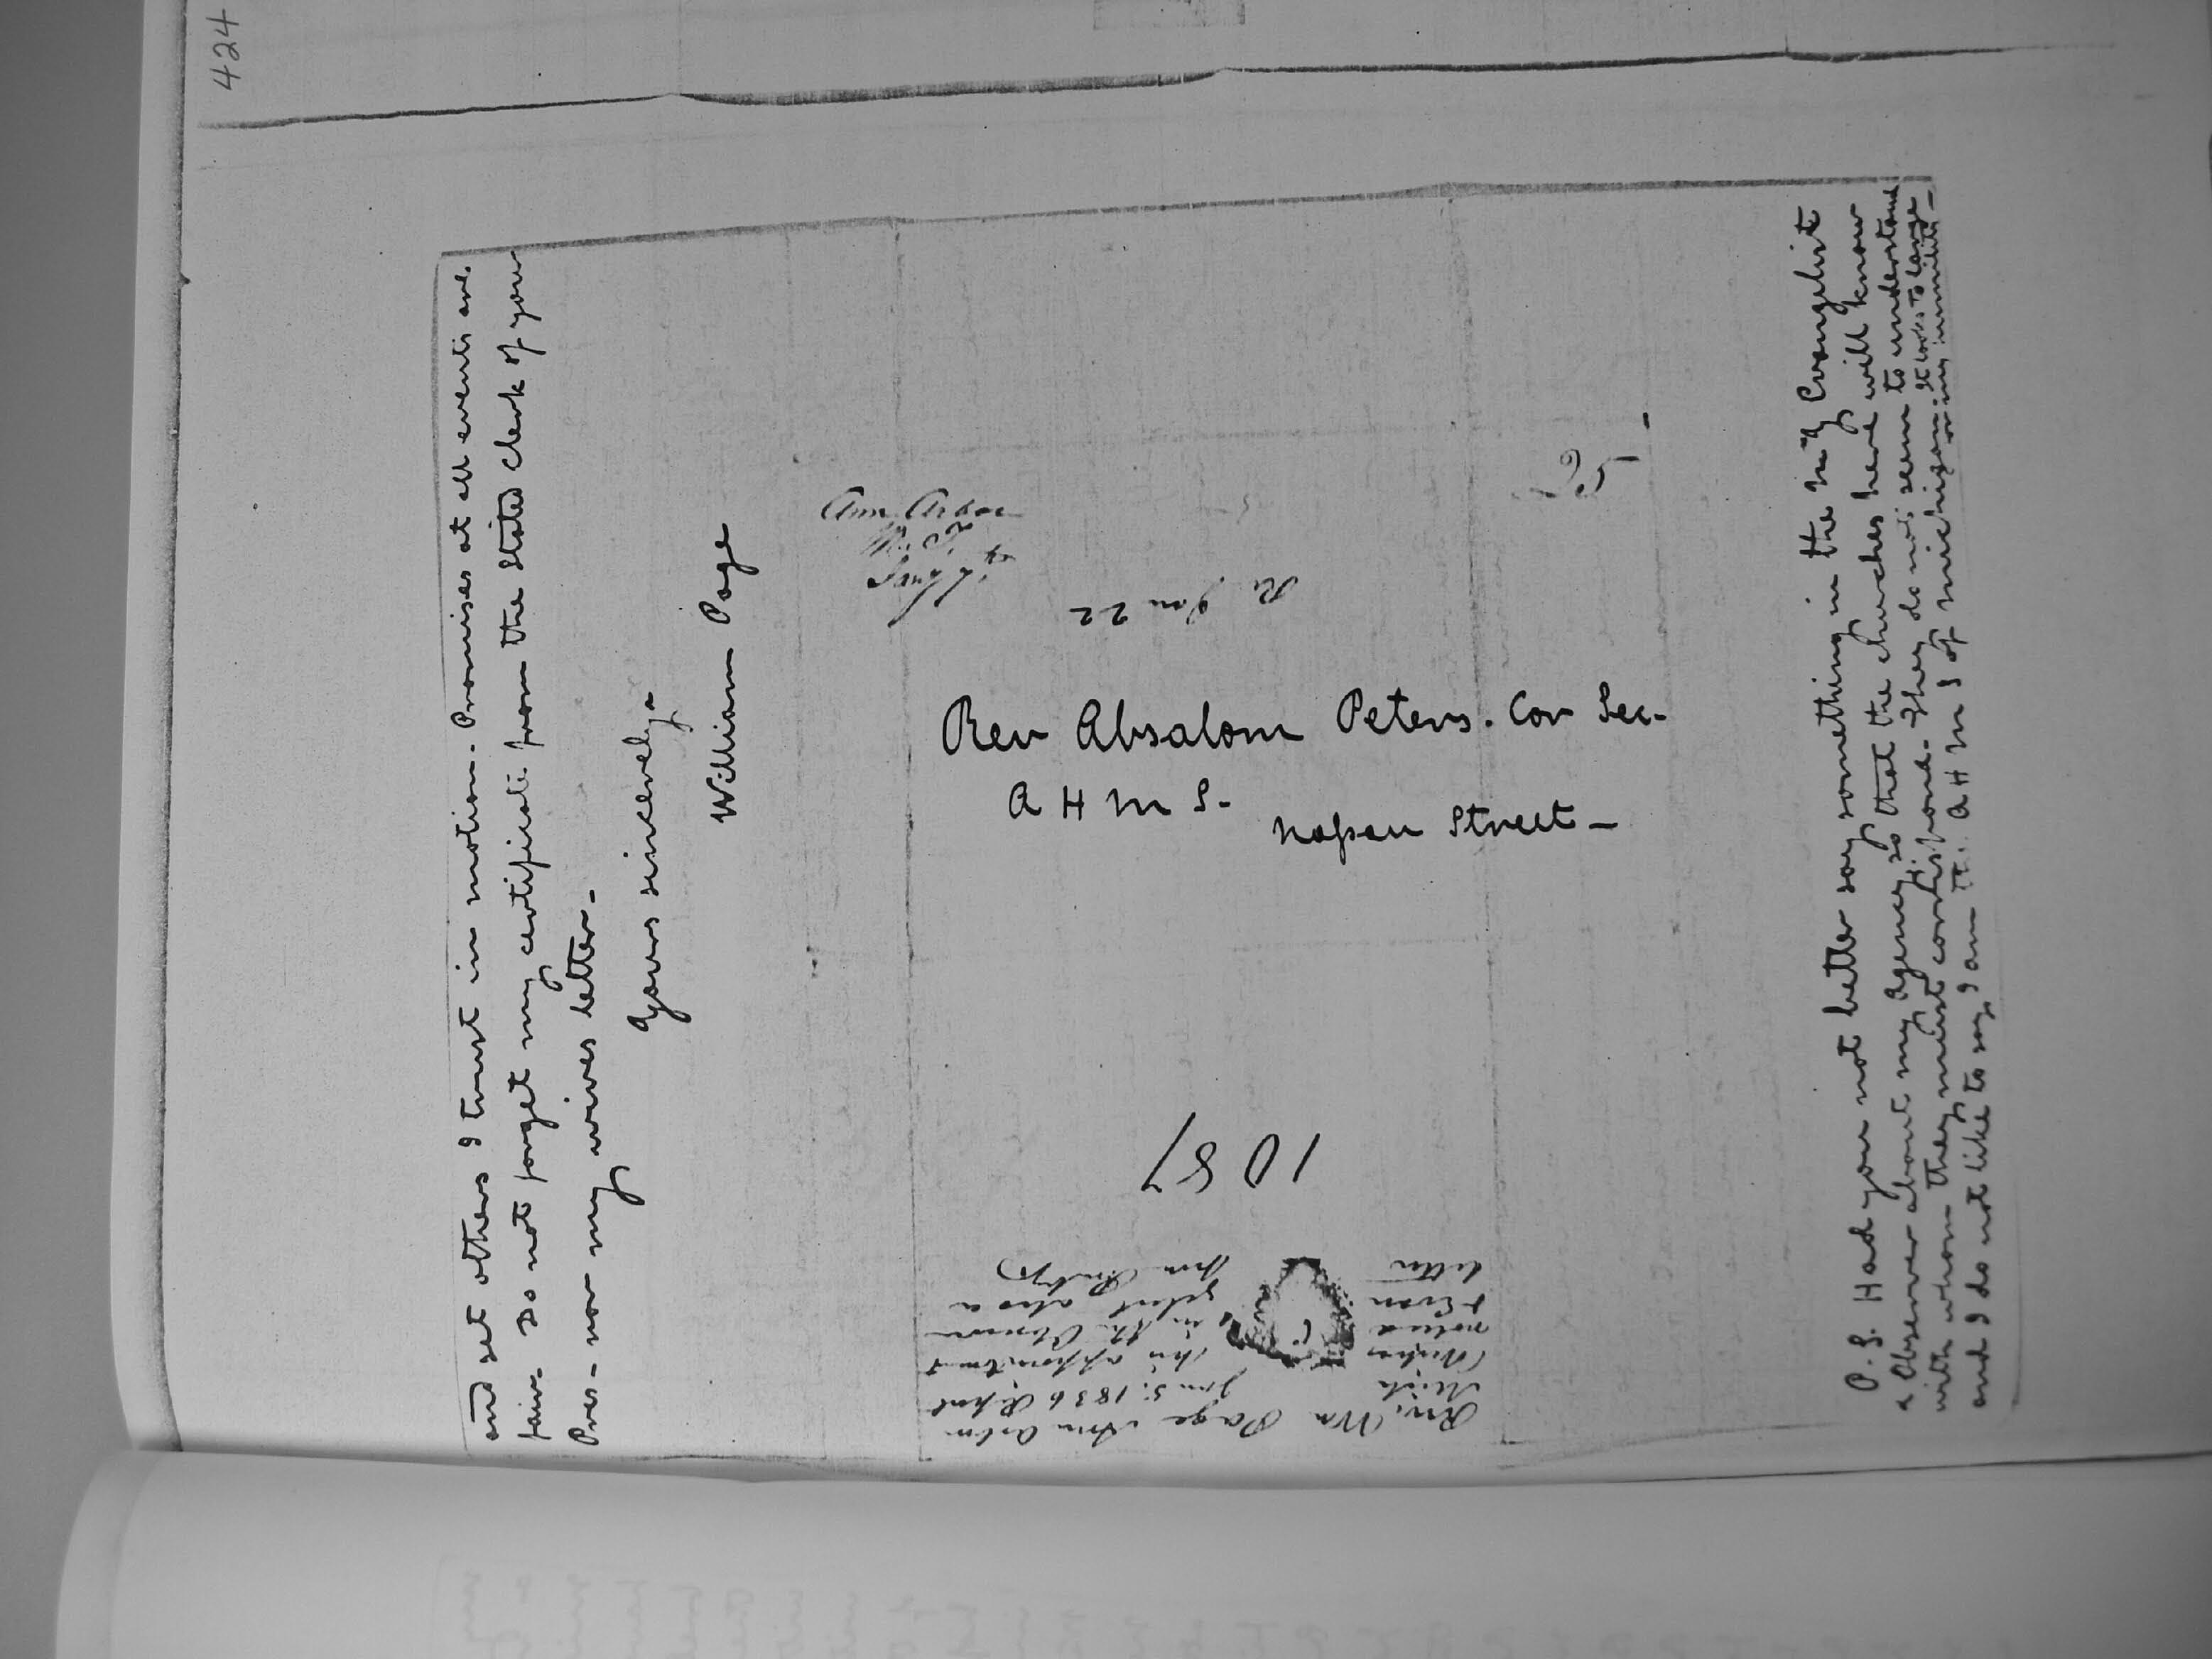 424
and set others I trust in motion - Promises at all events are
fair. Do not forget my certificate from the Stated clerk of your
Pres - nor my wives letter -
Yours sincerely
William Page
Ann Arbor
M. T.
Jany
25
Re Jan 22
Rev Absalom Peters. Cor Sec -
A H M S -
Nassau Street -
1057
Rev. Wm Page Ann Arbor
Mich Jan 5. 1836
his appointment
notice in the Observer
& Evan. also a
letter from
P. S. Had you not better say something in the N Y Evangelist
& Observer about my Agency so that the churches here will know
with whom they must correspond - They do not seem to understand
and I do not like to say I am the A H M S of Michigan: It looks to large
for my humility -